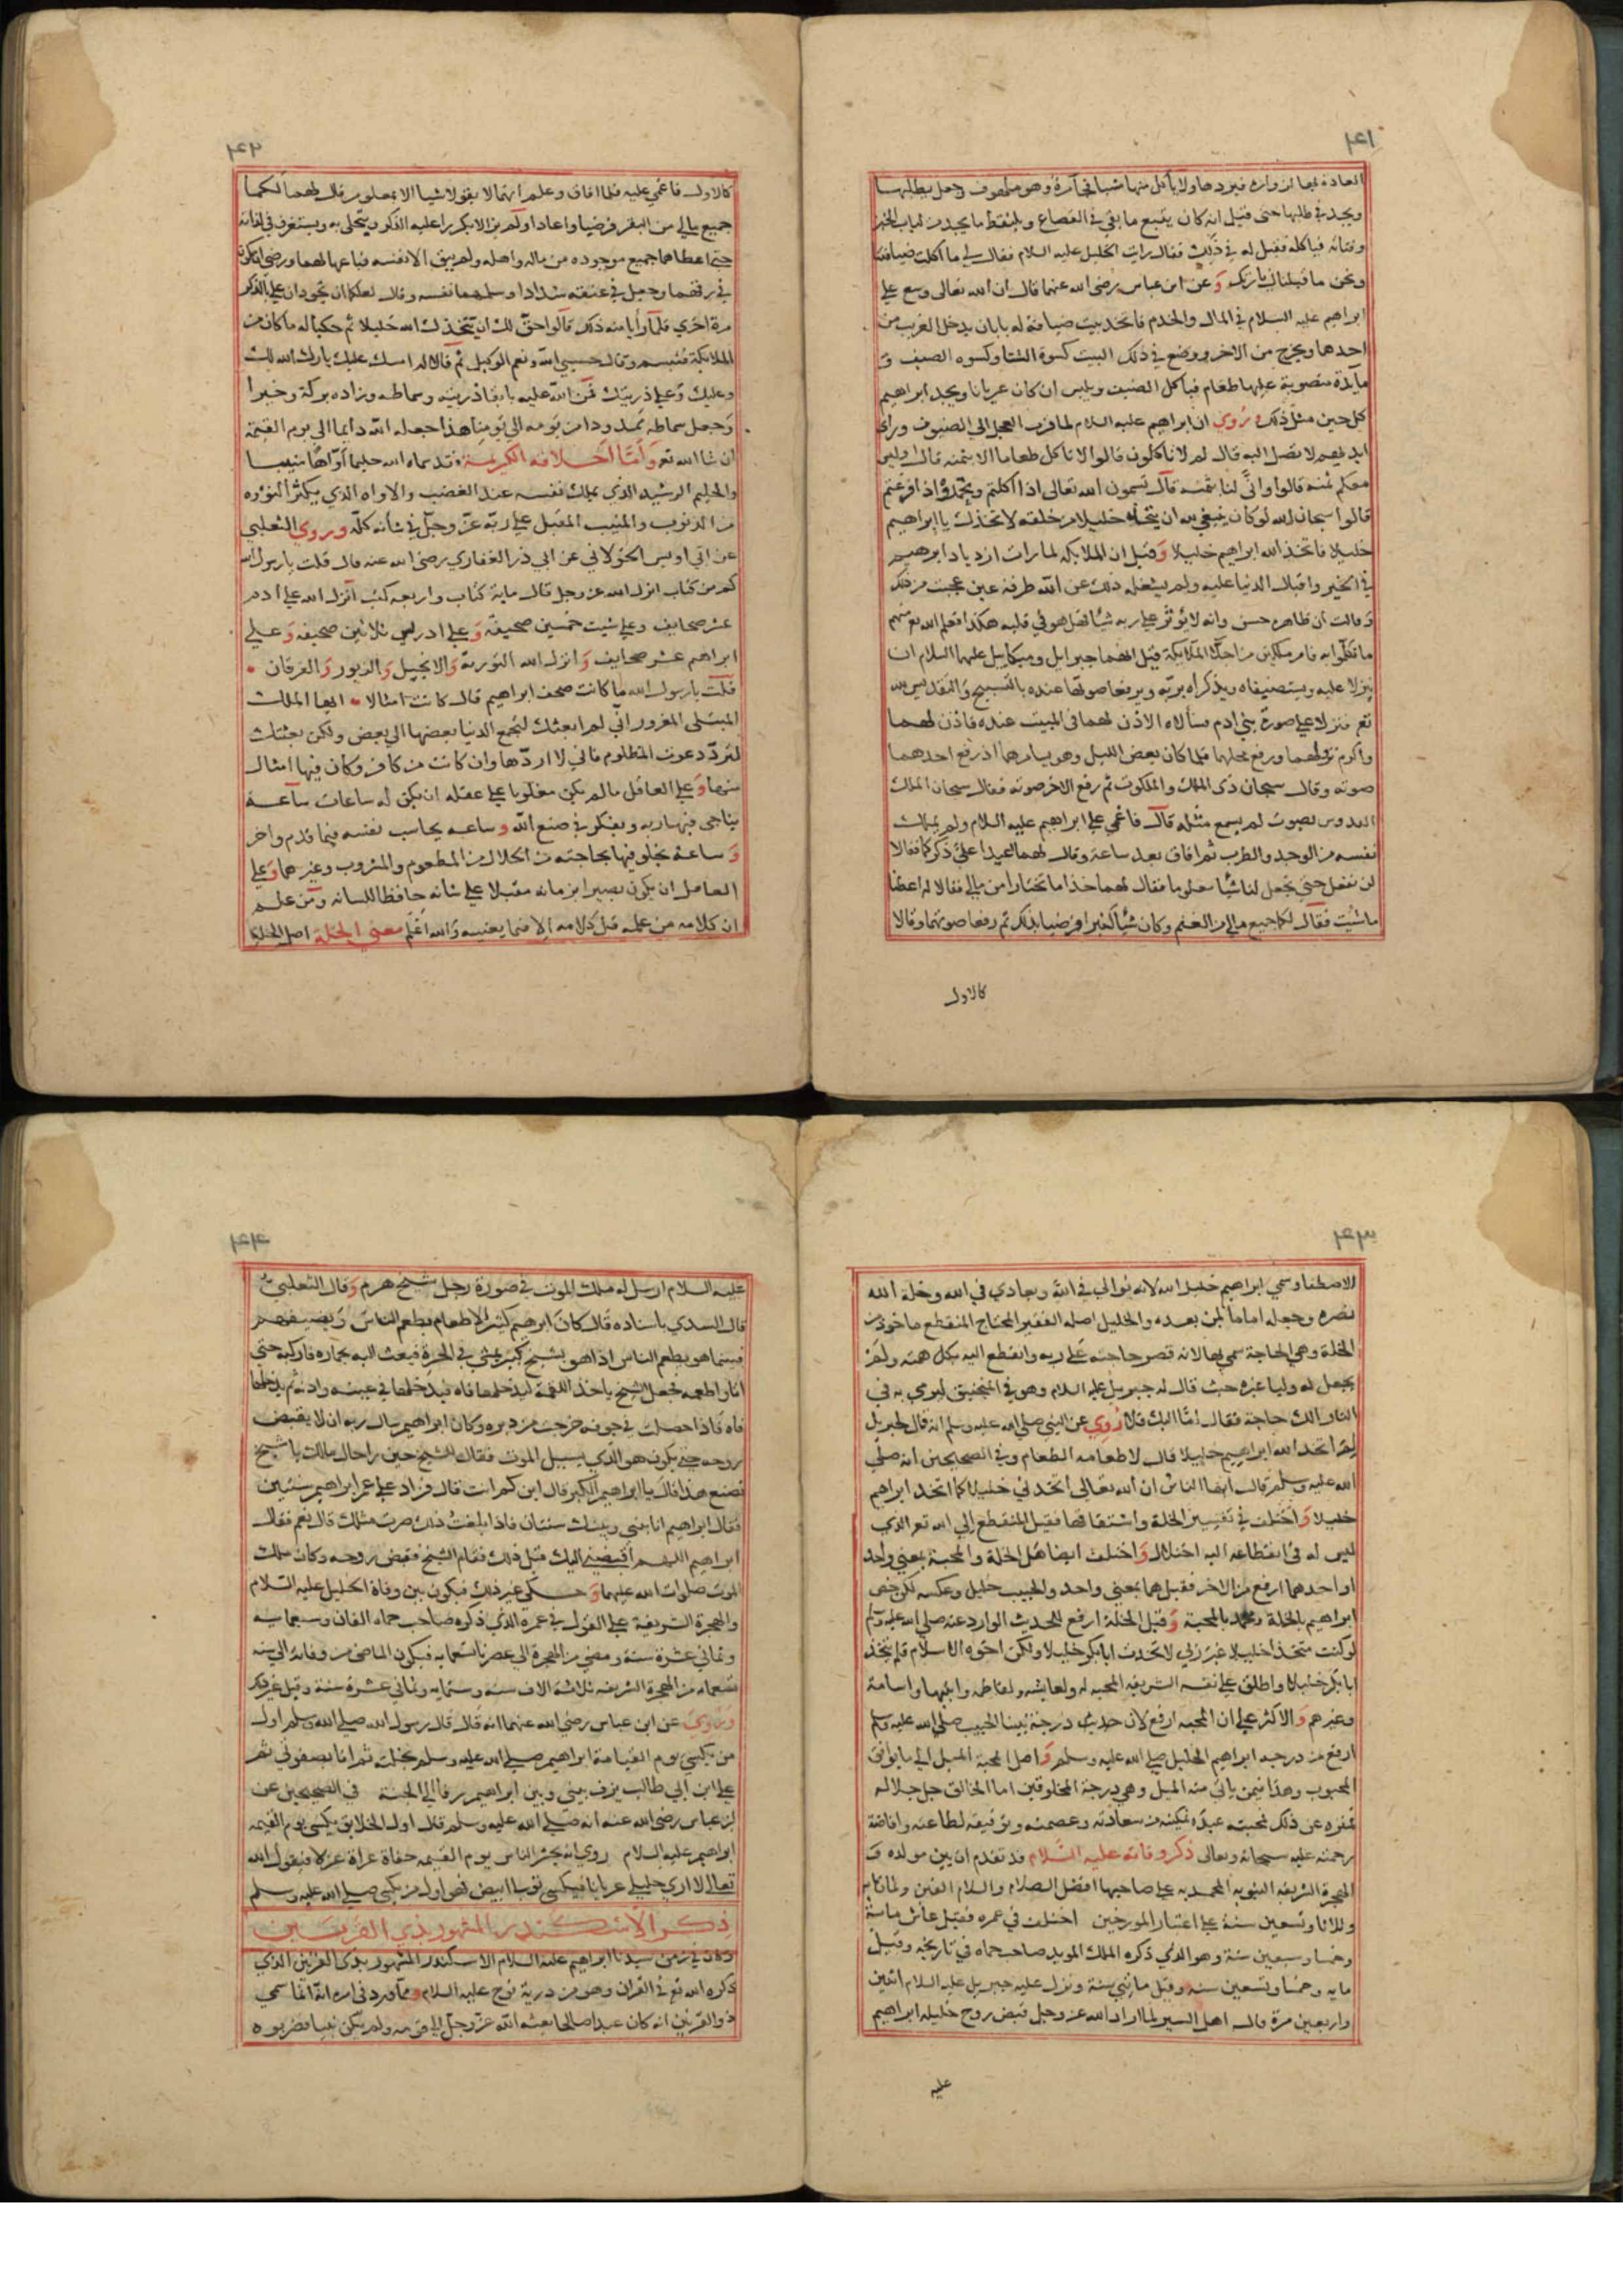 ٢٤١
ويجد في طلبها حتى قيل انه كان يتبع ما بقي في القصاع ويلتقط ما يجد من لباب الخبز
وفتاته فياكله فقيل له في ذلك فقال رايت الخليل عليه السلام فقال لي ما اكلت ضيافتنا
ونحن ما قبلنا زيارتك وعن ابن عباس رضي الله عنهما قال ان الله تعالى وسع على
ابراهيم عليه السلام في المال والخدم فاتخذ بيت ضيافة له بابان يدخل الغريب من
احدهما ويخرج من الاخر ووضع في ذلك البيت كسوة الشتا وكسوه الصيف و
مايدة منصوبة عليها طعام فياكل الضيف ويلبس ان كان عريانا ويجد ابراهيم
كل حين مثل ذلك روي ان ابراهيم عليه السلام لما قرب العجل الى الضيوف وراى
ايديهم لا تصل اليه قال لم لا تاكلون قالوا لا ناكل طعاما الا بثمنه قال وليس
معكم ثمنه قالوا وانى لنا ثمنه قال تسمون الله تعالى اذا اكلتم وتحمدوه اذا فرغتم
قالوا سبحان الله لو كان ينبغي لله ان يتخذ خليلا من خلقه لاتخذك يا ابراهيم
خليلا فاتخذ الله ابراهيم خليلا وقيل ان الملايكه لما رات ازدياد ابرهيم
في الخير واقبال الدنيا عليه ولم يشغله ذلك عن الله طرفة عين عجبت من ذلك
وقالت ان ظاهره حسن وانه لا يؤثر على ربه شيا فهل هو في قلبه هكذا فعلم الله تع منهم
ما تكلموا به فامر ملكين من اجل الملايكة قيل انهما جبرايل وميكاييل عليهما السلام ان
ينزلا عليه ويستضيفاه ويذكراه بربه ويرفعا صوتهما عنده بالتسبيح والتقديس لله
تع فنزلا على صورة بني ادم فسالاه الاذن لهما في المبيت عنده فاذن لهما
واكرم نزلهما ورفع محلهما فلما كان بعض الليل وهو يسامرهما اذ رفع احدهما
صوته وقال سبحان ذي الملك والملكوت ثم رفع الاخر صوته فقال سبحان الملك
القدوس بصوت لم يسمع مثله قال فاغمي على ابراهيم عليه السلام ولم يملك
نفسه من الوجد والطرب ثم افاق بعد ساعة وقال لهما اعيدا علي ذكركما فقالا
لن نفعل حتى تجعل لنا شيا معلوما فقال لهما خذا ما تختارا من مالي فقالا له اعطنا
ما شيت فقال لكما جميع مالي من الغنم وكان شيا كثيرا فرضيا بذلك ثم رفعا صوتهما وقالا
كالاول
٢٤٢
كالاول فاغمي عليه فلما افاق وعلم انهما لا يقولا شيا الا بمعلوم قال لهما لكما
جميع مالي من البقر فرضيا واعادا ولم يزالا يكررا عليه الذكر ويتحلى به ويستغرق في لذاته
حتى اعطاهما جميع موجوده من ماله واهله ولم يبق الا نفسه فباعها لهما ورضي ان يكون
في رقهما وجعل في عنقه شدادا وسلمهما نفسه وقال لعلكما ان تجودان علي بالذكر
مرة اخرى فلما رأيا منه ذلك قالوا حق لك ان يتخذك الله خليلا ثم حكيا له ما كان من
الملايكة فتبسم وقال حسبي الله ونعم الوكيل ثم قالا له امسك عليك بارك الله لك
وعليك وعلى ذريتك فمن الله عليه بابقا ذريته وسماطه وزاده بركة وخيرا
وجعل سماطه ممدودا من يومه الى يومنا هذا جعله الله دايما الى يوم القيمة
ان شا الله تع وأما أخلاقه الكريمة فقد سماه الله حليما أواها منيبا
والحليم الرشيد الذي يملك نفسه عند الغضب والاواه الذي يكثر التوّه
من الذنوب والمنيب المقبل على ربه عز وجل في شأنه كله وروى الثعلبي
عن ابي اويس الخولاني عن ابي ذر الغفاري رضي الله عنه قال قلت يا رسول الله
كم من كتاب انزل الله عز وجل قال ماية كتاب واربعه كتب انزل الله على ادم
عشر صحايف وعلى شيث خمسين صحيفة وعلى ادريس ثلاثين صحيفه وعلى
ابراهيم عشر صحايف وانزل الله التورية والانجيل والزبور والفرقان
قلت يا رسول الله ما كانت صحف ابراهيم قال كانت امثالا ايها الملك
المبتلى المغرور اني لم ابعثك لتجمع الدنيا بعضها الى بعض ولكن بعثتك
لترد دعوت المظلوم فاني لا اردها وان كانت من كافر وكان فيها امثال
منها وعلى العاقل مالم يكن مغلوبا على عقله ان يكون له ساعات ساعة
يناجي فيها ربه ويفكر في صنع الله وساعه يحاسب نفسه فيما قدم واخر
وساعة يخلو فيها بحاجته من الحلال من المطعوم والمشروب وغيرهما وعلى
العاقل ان يكون بصيرا بزمانه مقبلا على شأنه حافظا للسانه ومن علم
ان كلامه من عمله قل كلامه الا فيما يعنيه والله اعلم معنى الخلة اصل الخلة
٢٤٣
الاصطفا وسمي ابراهيم خليل الله لانه يوالي في الله ويعادي في الله وخلة الله
نصره وجعله اماما لمن بعده والخليل اصله الفقير المحتاج المنقطع ماخوذ من
الخلة وهي الحاجة سمي بها لانه قصر حاجته على ربه وانقطع اليه بكل همته ولم
يجعل له وليا غيره حيث قال له جبريل عليه السلام وهو في المنجنيق ليرمى به في
النار الك حاجة فقال اما اليك فلا روي عن النبي صلى الله عليه وسلم انه قال لجبريل
لم اتخذ الله ابراهيم خليلا قال لاطعامه الطعام وفي الصحيحين انه صلى
الله عليه وسلم قال ايها الناس ان الله تعالى اتخذني خليلا كما اتخذ ابراهيم
خليلا واختلف في تفسير الخلة واشتقاقها فقيل المنقطع الى الله تع الذي
ليس له في انقطاعه اليه اختلال واختلف ايضا هل الخلة والمحبة بمعنى واحد
او احدهما ارفع من الاخر فقيل هما بمعنى واحد والحبيب خليل وعكسه لكن خص
ابراهيم بالخلة ومحمد بالمحبة وقيل الخلة ارفع للحديث الوارد عنه صلى الله عليه وسلم
لو كنت متخذا خليلا غير ربي لاتخذت ابا بكر خليلا ولكن اخوه الاسلام فلم يتخذ
ابا بكر خليلا واطلق على نفسه الشريفه المحبه له ولعايشه ولفاطمه وابنيها واسامة
وغيرهم والاكثر على ان المحبه ارفع لان درجة نبينا الحبيب صلى الله عليه وسلم
ارفع من درجه ابراهيم الخليل صلى الله عليه وسلم واصل المحبة الميل الى ما يوافق
المحبوب وهذا فيمن يأتي منه الميل وهي درجة المخلوقين اما الخالق جل جلاله
فمنزه عن ذلك فمحبته عبده تمكينه من سعادته وعصمته وتوفيقه لطاعته وافاضة
رحمته عليه سبحانه وتعالى ذكر وفاته عليه السلام قد تقدم ان بين مولده و
الهجرة الشريفه النبويه المحمديه على صاحبها افضل الصلاه والسلام الفين وثمانمايه
وثلاثا وتسعين سنة على اختيار المورخين اختلف في عمره فقيل عاش ماية
وخمسا وسبعين سنة وهو الذي ذكره الملك المويد صاحب حماه في تاريخه وقيل
مايه وخمسا وتسعين سنه وقيل مايتي سنة ونزل عليه جبريل عليه السلام اثنين
واربعين مرة قال اهل السير لما اراد الله عز وجل قبض روح خليله ابراهيم
عليه
٢٤٤
عليه السلام ارسل له ملك الموت في صورة رجل شيخ هرم وقال الثعلبي
قال السدي باسناده قال كان ابرهيم كثير الاطعام يطعم الناس ويضيفهم
فبينما هو يطعم الناس اذا هو بشيخ كبير يمشي في الحرة فبعث اليه بحماره فاركبه حتى
اتاه واطعمه فجعل الشيخ ياخذ اللقمة ليدخلها فاه فيدخلها في عينه واذنه ثم يدخلها
فاه فاذا حصلت في جوفه خرجت من دبره وكان ابراهيم سال ربه ان لا يقبض
روحه حتى يكون هو الذي يسيل الموت فقال للشيخ حين راى حاله مالك يا شيخ
تصنع هذا قال يا ابراهيم الكبر قال ابن كم انت قال فزاد على عمر ابراهيم سنتين
فقال ابراهيم انا بيني وبينك سنتان فاذا بلغت ذلك صرت مثلك قال نعم فقال
ابراهيم اللهم اقبضني اليك قبل ذلك فقام الشيخ فقبض روحه وكان ملك
الموت صلوات الله عليهما وحكي غير ذلك فيكون بين وفاة الخليل عليه السلام
والهجرة الشريفة على القول في عمره الذي ذكره صاحب حماه الفان وسبعمايه
وثماني عشرة سنة ومضى من الهجرة الى عصرنا تسعمايه فيكون الماضي من وفاته الى سنه
تسعمايه من الهجرة الشريفه ثلاثة الاف سنه وستمايه وثماني عشرة سنة وقيل غير ذلك
وروي عن ابن عباس رضي الله عنهما انه قال قال رسول الله صلى الله عليه وسلم اول
من يكسى يوم القيامة ابراهيم صلى الله عليه وسلم بخلته ثم انا بصفوتي ثم
علي ابن ابي طالب يزف بيني وبين ابراهيم زفا الى الجنة في الصحيحين عن
ابن عباس رضي الله عنه انه صلى الله عليه وسلم قال اول الخلايق يكسى يوم القيمه
ابراهيم عليه السلام روي انه يحشر الناس يوم القيمه حفاة عراة غرلا فيقول الله
تعالى لا ارى خليلي عريانا فيكسى ثوبا ابيض فهو اول من يكسى صلى الله عليه وسلم
ذكر الإسكندر المشهور بذي القرنين
وكان في زمن سيدنا ابراهيم عليه السلام الاسكندر المشهور بذي القرنين الذي
ذكره الله تع في القران وهو من ذرية نوح عليه السلام ومما ورد في امره انه انما سمي
ذو القرنين انه كان عبدا صالحا بعثه الله عز وجل الى قومه ولم يكن نبيا فضربوه